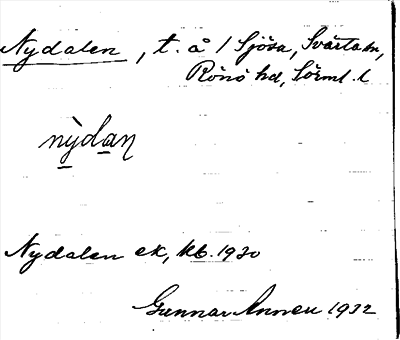 Nydalen, t. å / Sjösa, Svärta sn,
Rönö hd, Sörml. l
nỳdaṇ
Nydalen ek, kb. 1930
Gunnar 1932